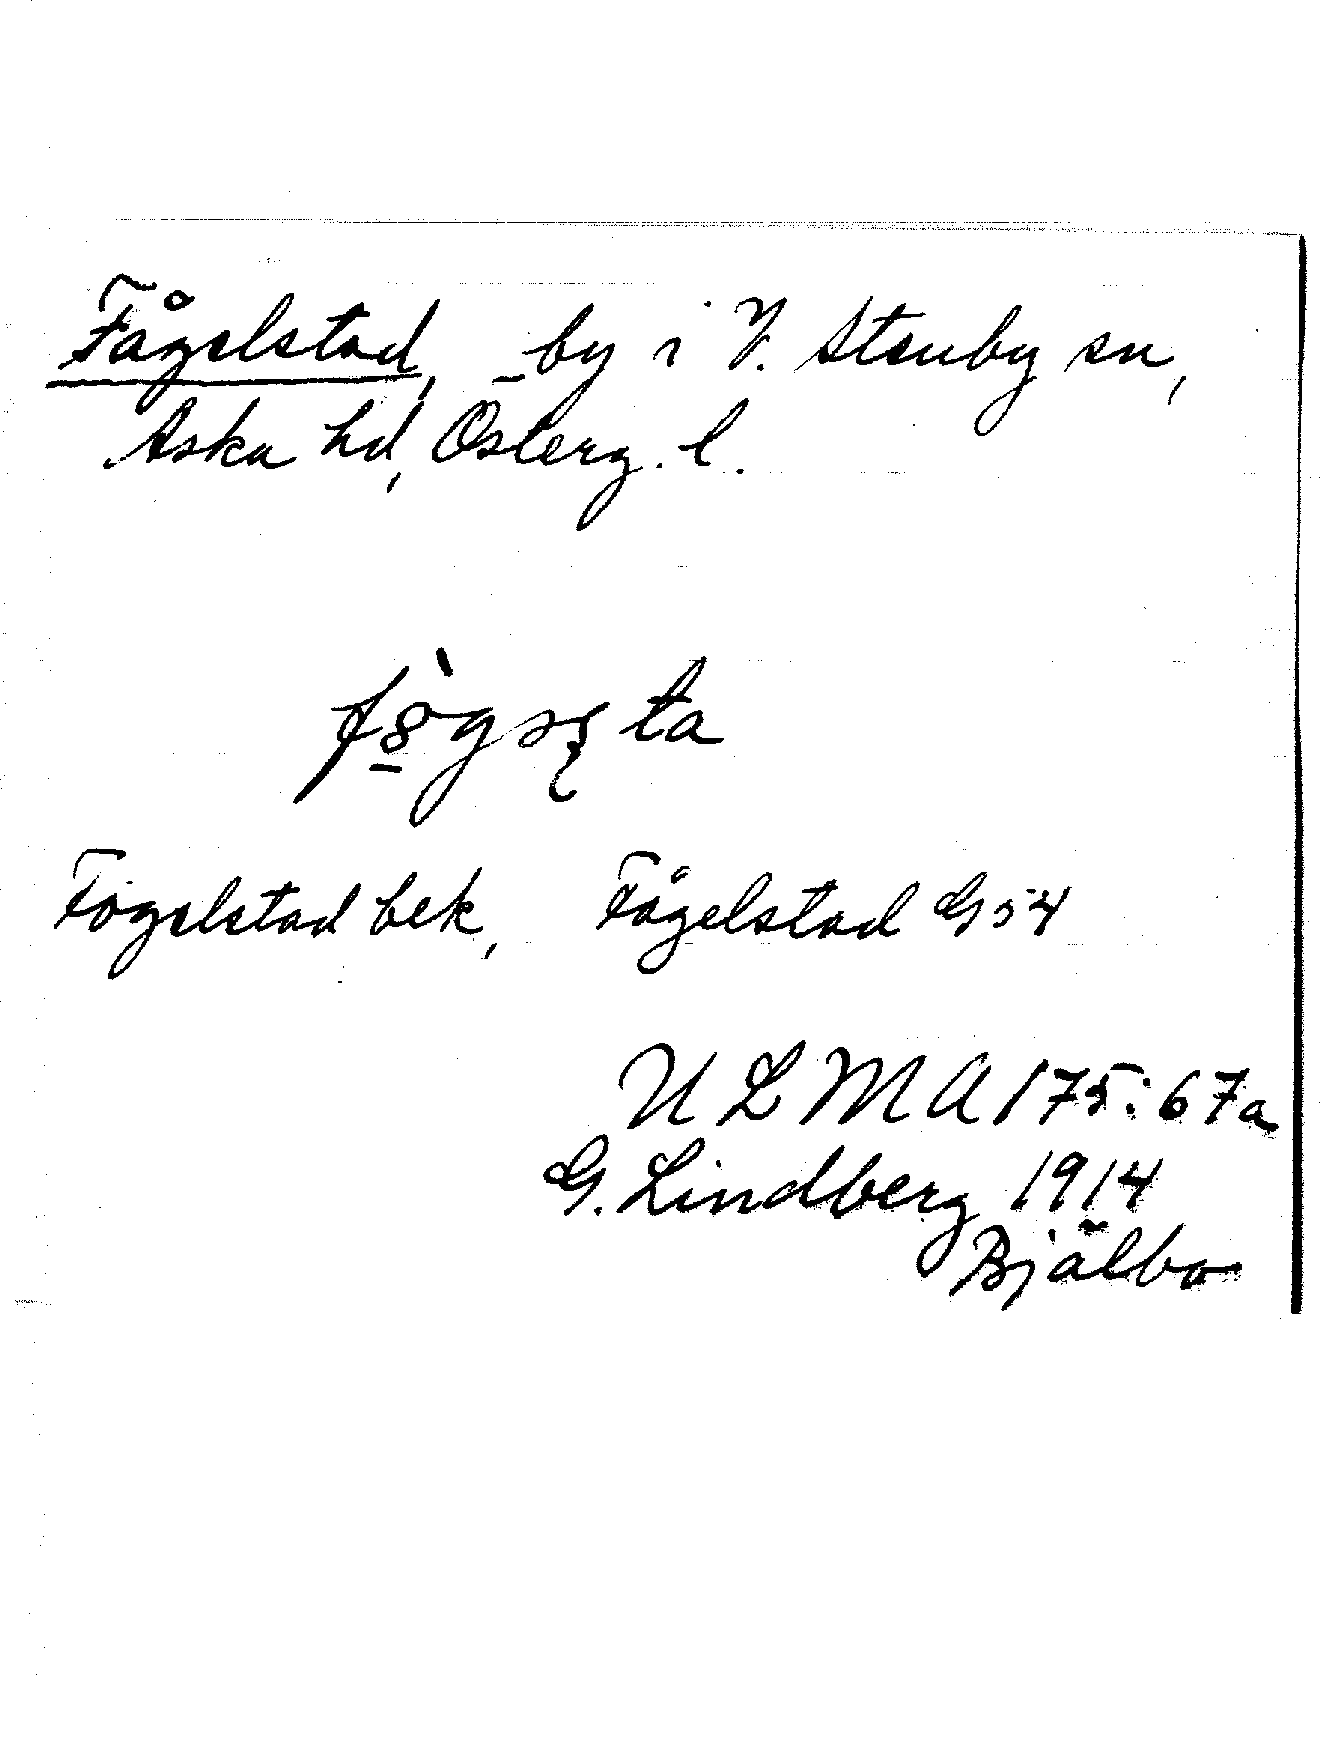 Fågelstad, by i V. Stenby sn,
Aska hd, Österg. l.
Fogelstad bek, Fågelstad G 54
ULMA 175:67a
G. Lindberg 1914
Bjälbo